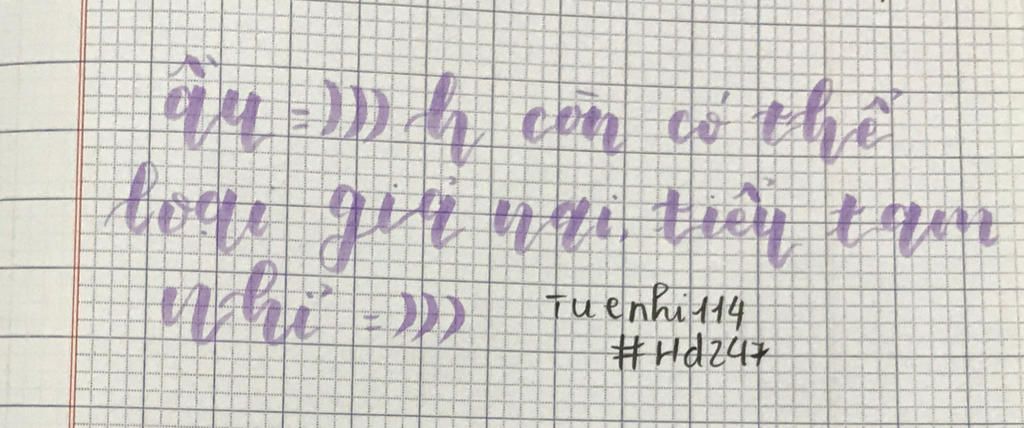 ầu =)))) h còn có thể
loại giả nai, tiểu tam
nhỉ =)))
Tuenhi114
#Hd247